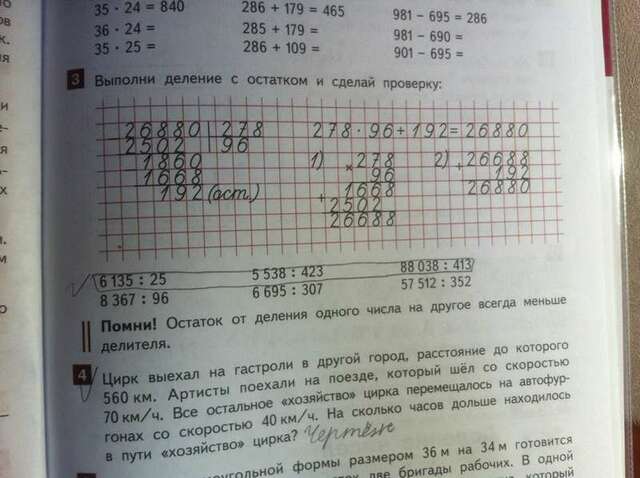 35 · 24 = 840 286 + 179 = 465 981 − 695 = 286
36 · 24 = 285 + 179 = 981 − 690 =
35 · 25 = 286 + 109 = 901 − 695 =
3 Выполни деление с остатком и сделай проверку:
26880 278 278 · 96 + 192 = 26880
2502 96 1) × 278 2) + 26688
1860 96 192
1668 + 1668 26880
192 (ост.) 2502
26688
6 135 : 25 5 538 : 423 88 038 : 413
8 367 : 96 6 695 : 307 57 512 : 352
Помни! Остаток от деления одного числа на другое всегда меньше
делителя.
4 Цирк выехал на гастроли в другой город, расстояние до которого
560 км. Артисты поехали на поезде, который шёл со скоростью
70 км/ч. Все остальное «хозяйство» цирка перемещалось на автофур-
гонах со скоростью 40 км/ч. На сколько часов дольше находилось
в пути «хозяйство» цирка? Чертёж
формы размером 36 м на 34 м готовится
две бригады рабочих. В одной
который